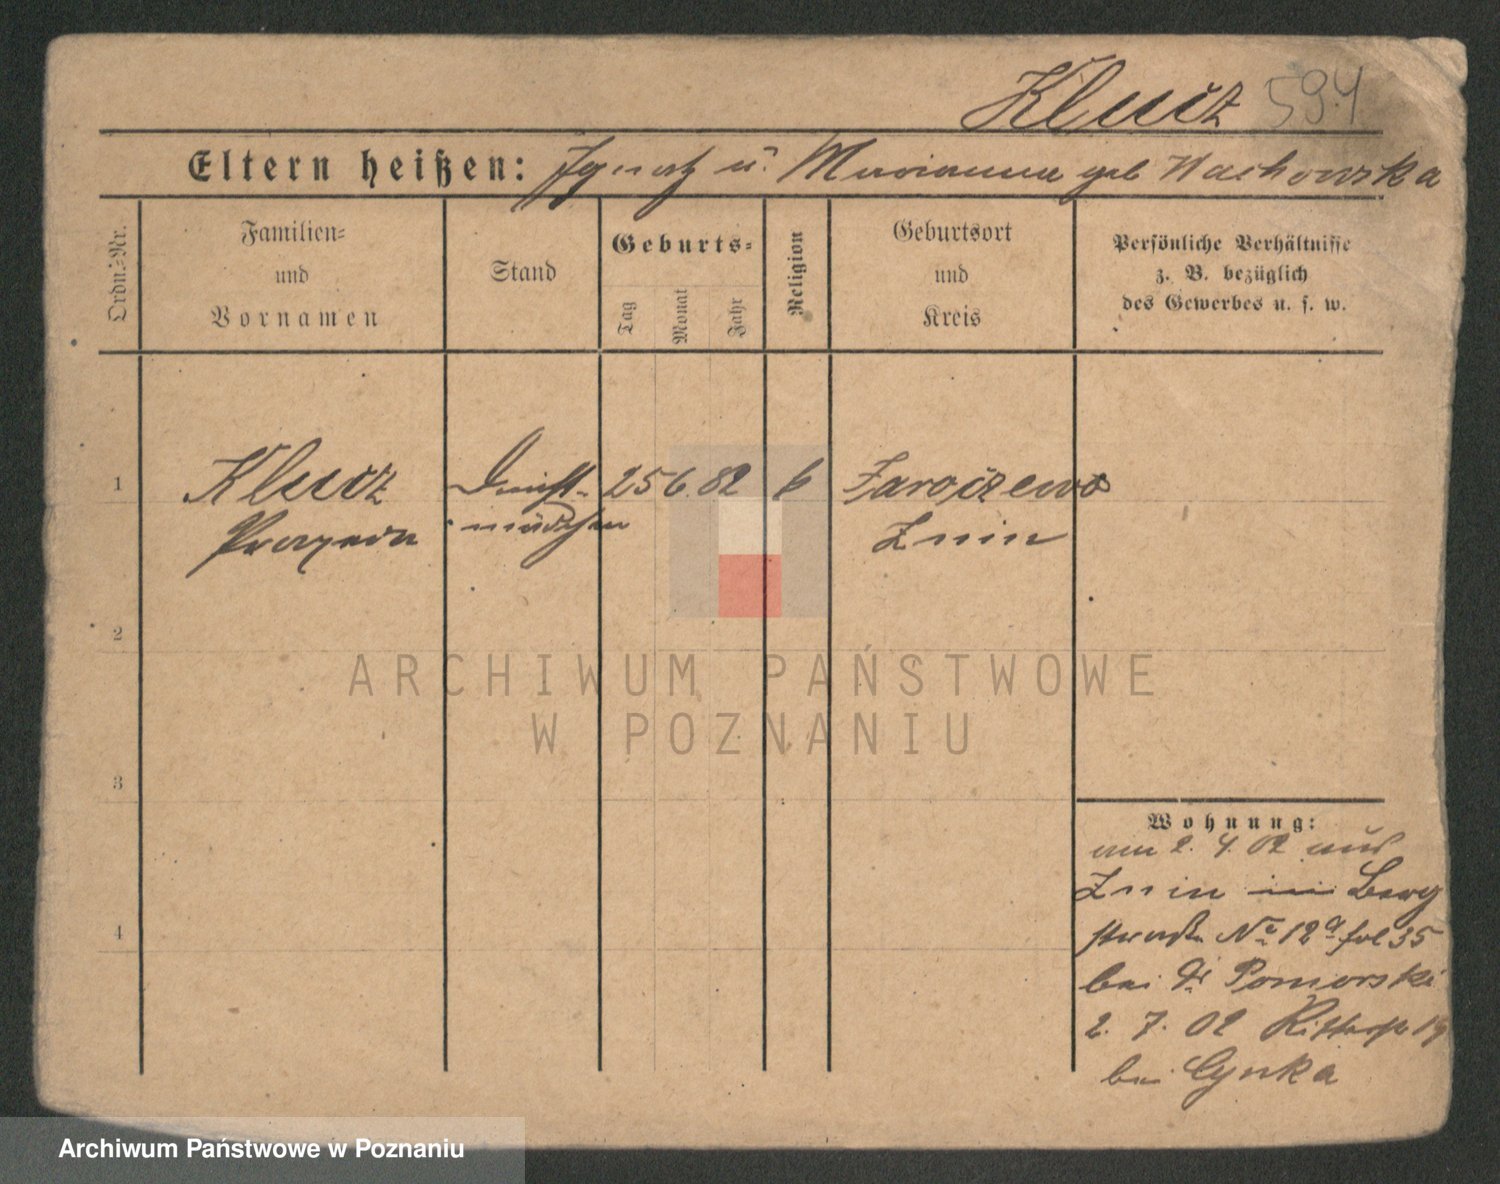 Klucz 594
Eltern heißen: Ignatz u. Marianna geb Wachowska
Ordn.-Nr.
Familien-
und
Vornamen
Stand
Geburts-
Tag
Monat
Jahr
Religion
Geburtsort
und
Kreis
Persönliche Verhältnisse
z. B. bezüglich
des Gewerbes u. s. w.
1 Klucz Dienst- 25 6 82 k Jaroszewo
Praxeda mädchen Znin
2
3
4
Wohnung:
am 2. 4. 02 aus
Znin Berg
straße No 12a fol 35
bei Dr Pomorski
2. 7. 02 Ritterstr 19
bei Cynka
ARCHIWUM PAŃSTWOWE
W POZNANIU
Archiwum Państwowe w Poznaniu